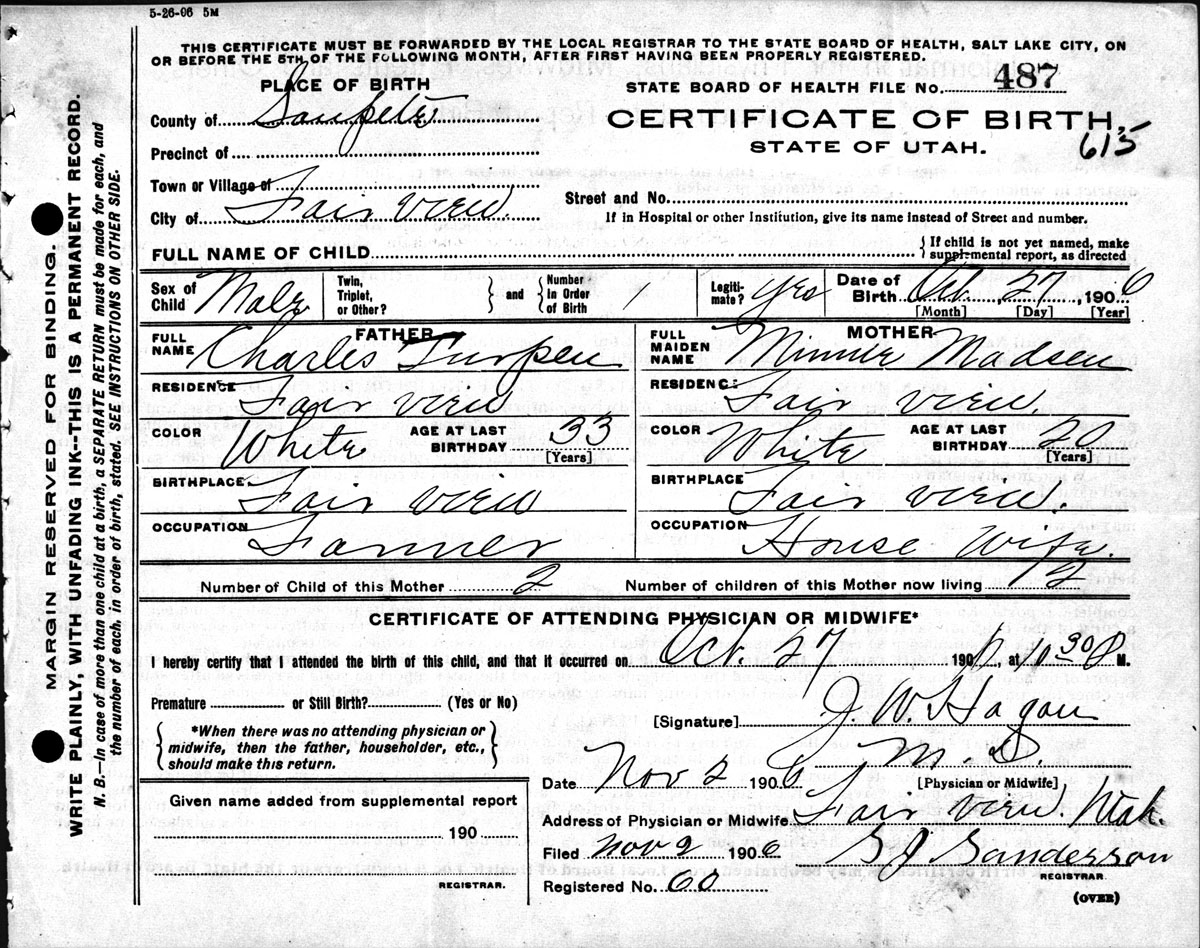 5-26-06 5M
THIS CERTIFICATE MUST BE FORWARDED BY THE LOCAL REGISTRAR TO THE STATE BOARD OF HEALTH, SALT LAKE CITY, ON
OR BEFORE THE 5TH OF THE FOLLOWING MONTH, AFTER FIRST HAVING BEEN PROPERLY REGISTERED.
PLACE OF BIRTH
County of Sanpete
Precinct of
Town or Village of
City of Fair view.
STATE BOARD OF HEALTH FILE No. 487
CERTIFICATE OF BIRTH,
615
STATE OF UTAH.
Street and No.
If in Hospital or other Institution, give its name instead of Street and number.
FULL NAME OF CHILD
{If child is not yet named, make supplemental report, as directed
Sex of Child Male
Twin, Triplet, or Other?
} and { Number in Order of Birth 1
Legitimate? yes
Date of Birth Oct. 27, 1906
[Month] [Day] [Year]
FATHER
FULL NAME Charles Turpen
RESIDENCE Fair view
COLOR White AGE AT LAST BIRTHDAY 33 [Years]
BIRTHPLACE Fair view
OCCUPATION Farmer
MOTHER
FULL MAIDEN NAME Minnie Madsen
RESIDENCE Fair view.
COLOR White AGE AT LAST BIRTHDAY 20 [Years]
BIRTHPLACE Fair view.
OCCUPATION House Wife.
Number of Child of this Mother 2 Number of children of this Mother now living 2
CERTIFICATE OF ATTENDING PHYSICIAN OR MIDWIFE*
I hereby certify that I attended the birth of this child, and that it occurred on Oct. 27 1906, at 1 30 P M.
Premature or Still Birth? (Yes or No)
[Signature] J. W. Hagan
M. D.
[Physician or Midwife]
{*When there was no attending physician or
midwife, then the father, householder, etc.,
should make this return.}
Date Nov 2 1906
Address of Physician or Midwife Fair view. Utah.
Filed Nov 2 1906 S J Sanderson
REGISTRAR.
Registered No. 60
(OVER)
Given name added from supplemental report
190
REGISTRAR.
MARGIN RESERVED FOR BINDING.
WRITE PLAINLY, WITH UNFADING INK--THIS IS A PERMANENT RECORD.
N. B.—In case of more than one child at a birth, a SEPARATE RETURN must be made for each, and
the number of each, in order of birth, stated. SEE INSTRUCTIONS ON OTHER SIDE.